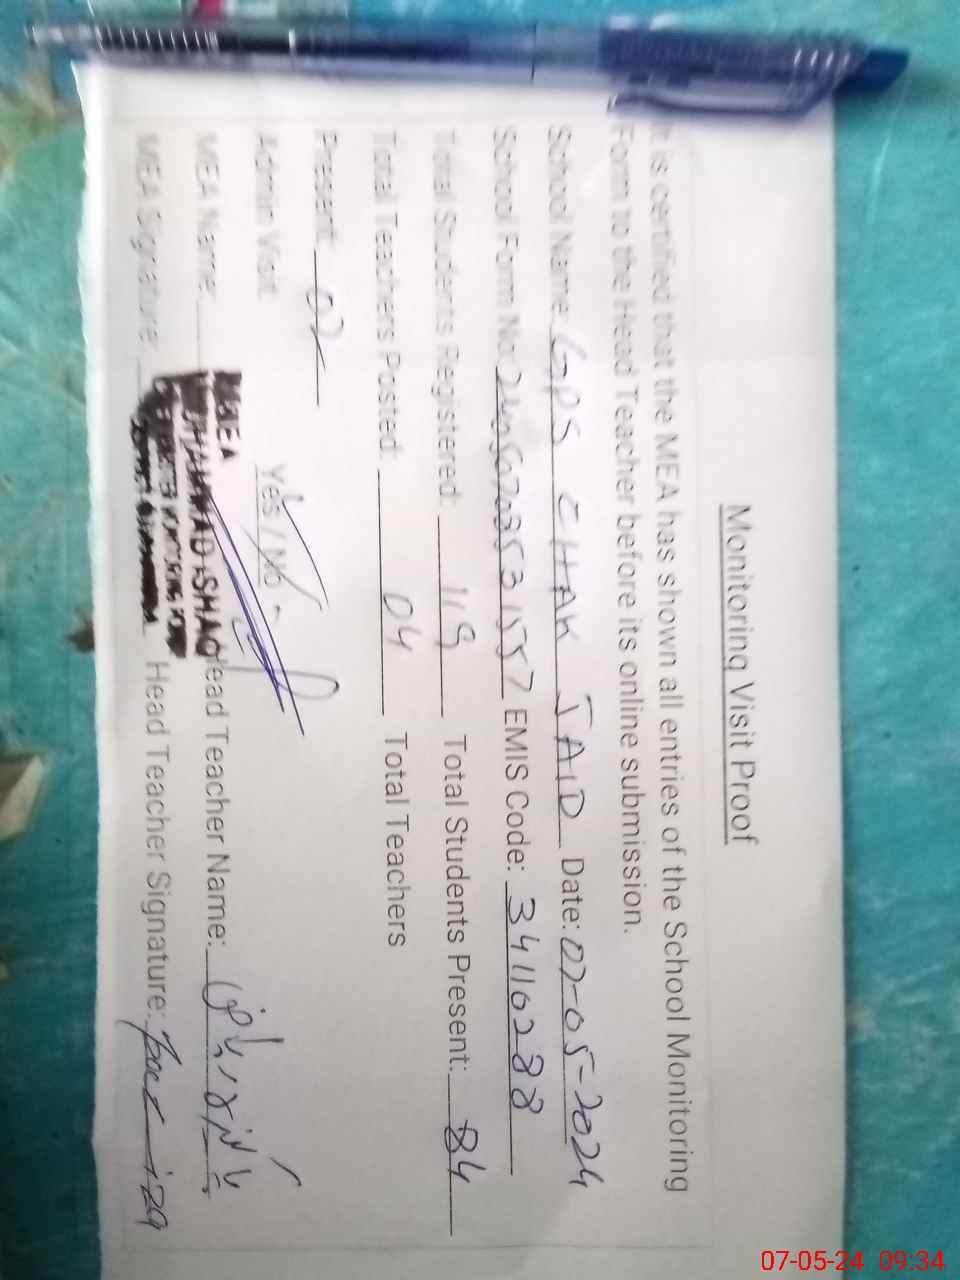 Monitoring Visit Proof
It is certified that the MEA has shown all entries of the School Monitoring
Form to the Head Teacher before its online submission.
School Name: GPS CHAK JAID Date: 07-05-2024
School Form No: EMIS Code: 34110288
Total Students Registered: 119 Total Students Present: 84
Total Teachers Posted: 04 Total Teachers
Present: 02
Admin Visit Yes / No
MEA Name: MEA Head Teacher Name:
MEA Signature: Head Teacher Signature:
07-05-24 09:34